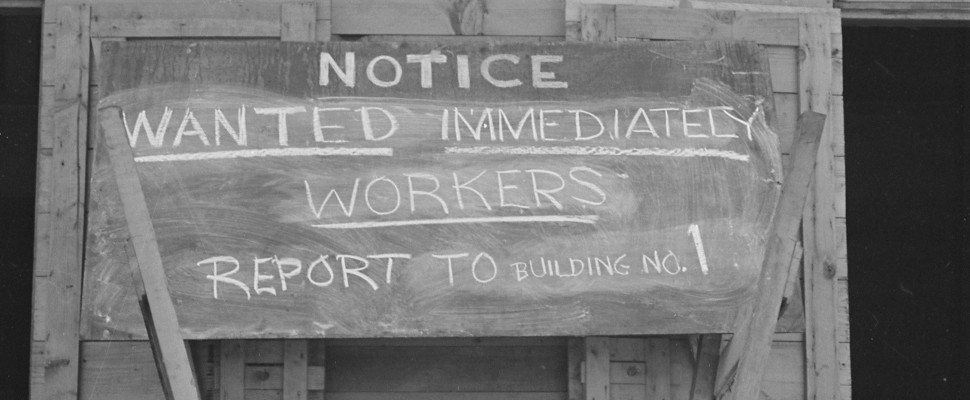 NOTICE
WANTED IMMEDIATELY
WORKERS
REPORT TO BUILDING NO. 1